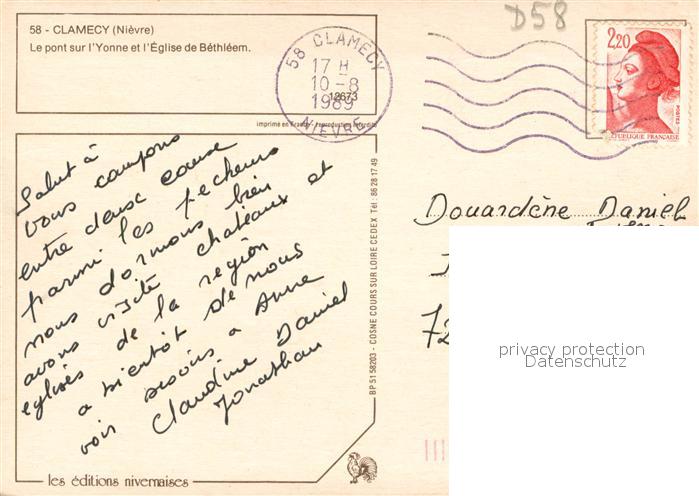 58 - CLAMECY (Nièvre)
Le pont sur l'Yonne et l'Église de Béthléem.
D58
58 CLAMECY
17 H
10-8
1989
NIEVRE
12673
2,20
POSTES
REPUBLIQUE FRANÇAISE
imprimé en France - reproduction interdite
Salut à
vous campons
entre deux canaux
parmi les pecheurs
nous dormons bien
avons visité chateaux et
eglises de la region
a bientôt de nous
voir bisous a Anne
Claudine Daniel
Jonathan
BP 51 58203 - COSNE COURS SUR LOIRE CEDEX Tél : 86 28 17 49
Douardène Daniel
72
privacy protection
Datenschutz
les éditions nivernaises